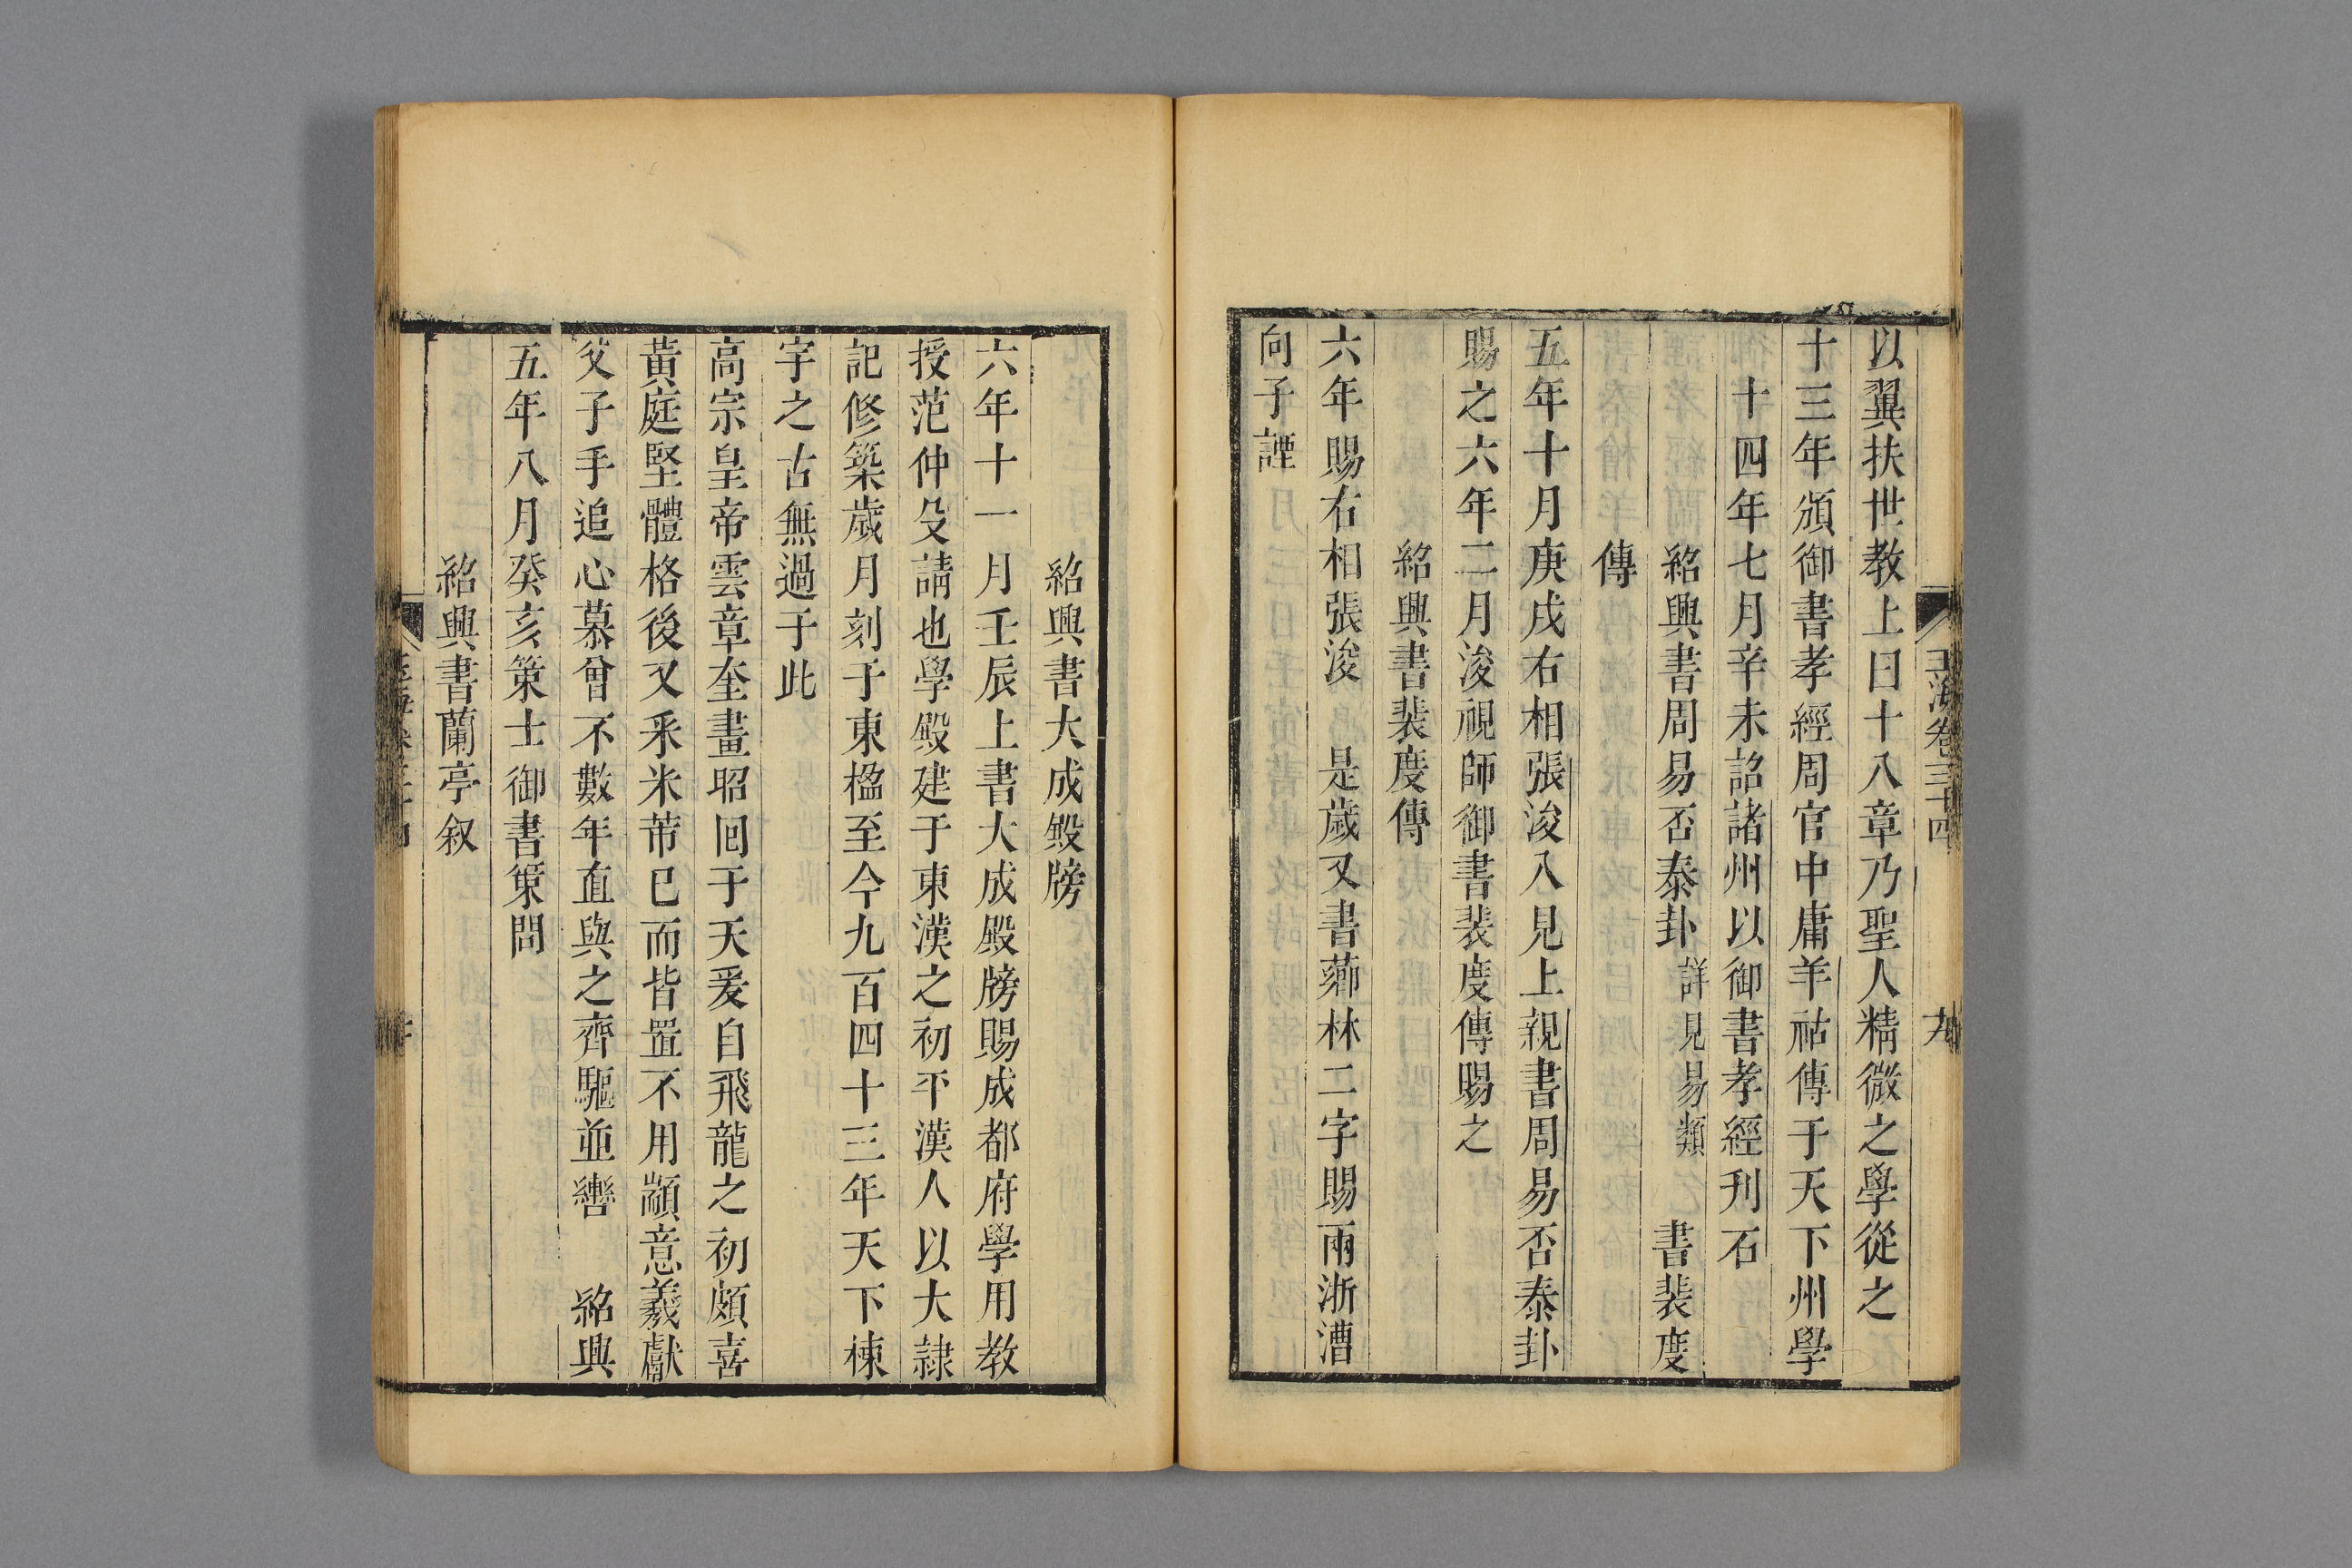 玉海卷三十四 九
以翼扶世教上曰十八章乃聖人精微之學從之
十三年頒御書孝經周官中庸羊祜傳于天下州學
十四年七月辛未詔諸州以御書孝經刋石
紹興書周易否泰卦 詳見易類 書裴度
傳
五年十月庚戌右相張浚入見上親書周易否泰卦
賜之六年二月浚視師御書裴度傳賜之
紹興書裴度傳
六年賜右相張浚 是歲又書薌林二字賜兩浙漕
向子諲
紹興書大成殿牓
六年十一月壬辰上書大成殿牓賜成都府學用教
授范仲殳請也學殿建于東漢之初平漢人以大隷
記修築歲月刻于東楹至今九百四十三年天下棟
宇之古無過于此
高宗皇帝雲章奎畫昭囘于天爰自飛龍之初頗喜
黃庭堅體格後又釆米芾已而皆置不用顓意羲獻
父子手追心慕曾不數年直與之齊驅並轡 紹興
五年八月癸亥策士御書策問
紹興書蘭亭叙